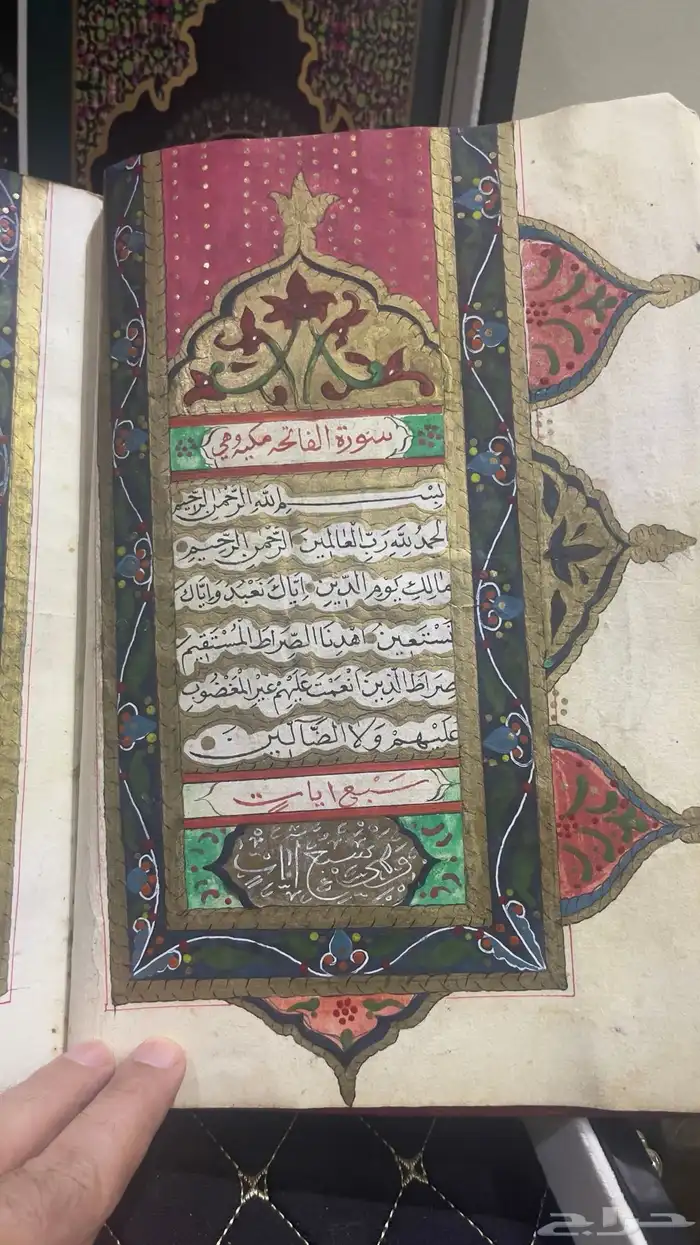 سورة الفاتحه مكيه وهي
بِسْــــــمِ اللهِ الرَّحْمٰنِ الرَّحِيْمِ
اَلْحَمْدُ لِلّٰهِ رَبِّ الْعَالَمِيْنَ الرَّحْمٰنِ الرَّحِيْمِ
مَالِكِ يَوْمِ الدِّيْنِ اِيَّاكَ نَعْبُدُ وَاِيَّاكَ
نَسْتَعِيْنُ اِهْدِنَا الصِّرَاطَ الْمُسْتَقِيْمَ
صِرَاطَ الَّذِيْنَ اَنْعَمْتَ عَلَيْهِمْ غَيْرِ الْمَغْضُوْبِ
عَلَيْهِمْ وَلَا الضَّآلِّيْنَ
سَبْعُ اٰيَاتٍ
حراج